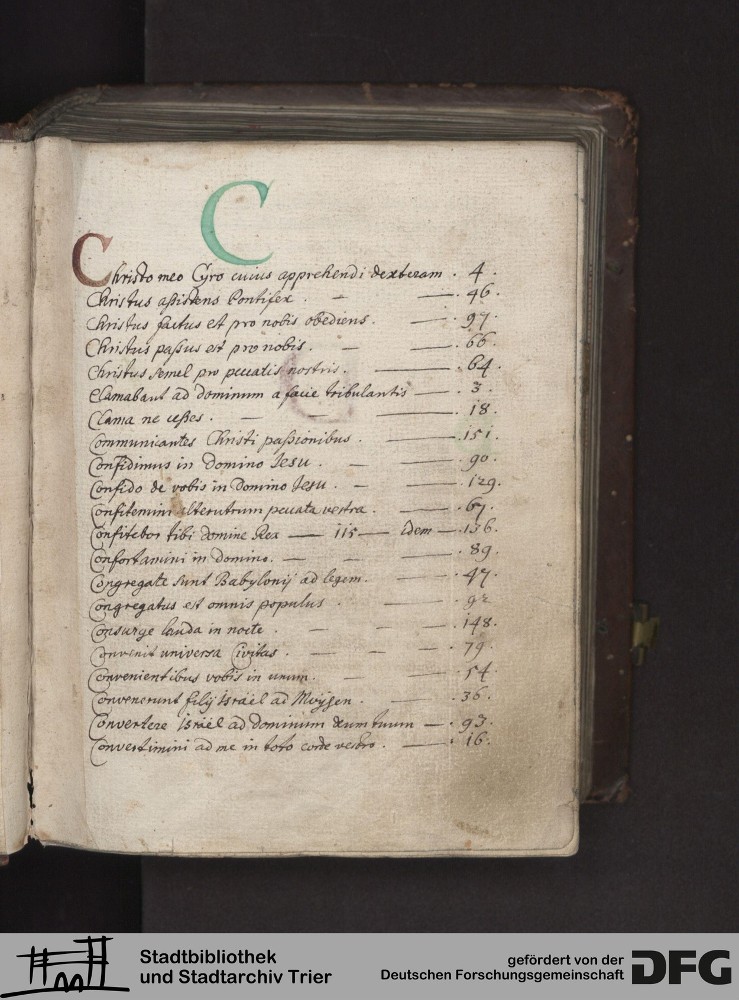 C
Christo meo Cyro cuius apprehendi dexteram . 4 .
Christus assistens Pontifex . — — . 46 .
Christus factus est pro nobis obediens . — . 97 .
Christus passus est pro nobis . — — . 66 .
Christus semel pro peccatis nostris . — . 64 .
Clamabant ad dominum a facie tribulantis — . 3 .
Clama ne cesses . — — — . 18 .
Communicantes Christi passionibus . — . 151 .
Confidimus in Domino Iesu . — — . 90 .
Confido de vobis in Domino Iesu . — — . 129 .
Confitemini alterutrum peccata vestra . — . 67 .
Confitebor tibi domine Rex — 115 — Idem — . 136 .
Confortamini in domino . — — — . 89 .
Congregati sunt Babylonij ad legem . — . 47 .
Congregatus est omnis populus . — . 92 .
Consurge lauda in nocte . — — — . 148 .
Convenit universa Civitas . — — — . 79 .
Convenientibus vobis in unum . — — . 54 .
Convenerunt filij Israël ad Moÿsen . — . 36 .
Convertere Israël ad dominum deum tuum — . 93 .
Convertimini ad me in toto corde vestro . — . 16 .
Stadtbibliothek
und Stadtarchiv Trier
gefördert von der
Deutschen Forschungsgemeinschaft
DFG